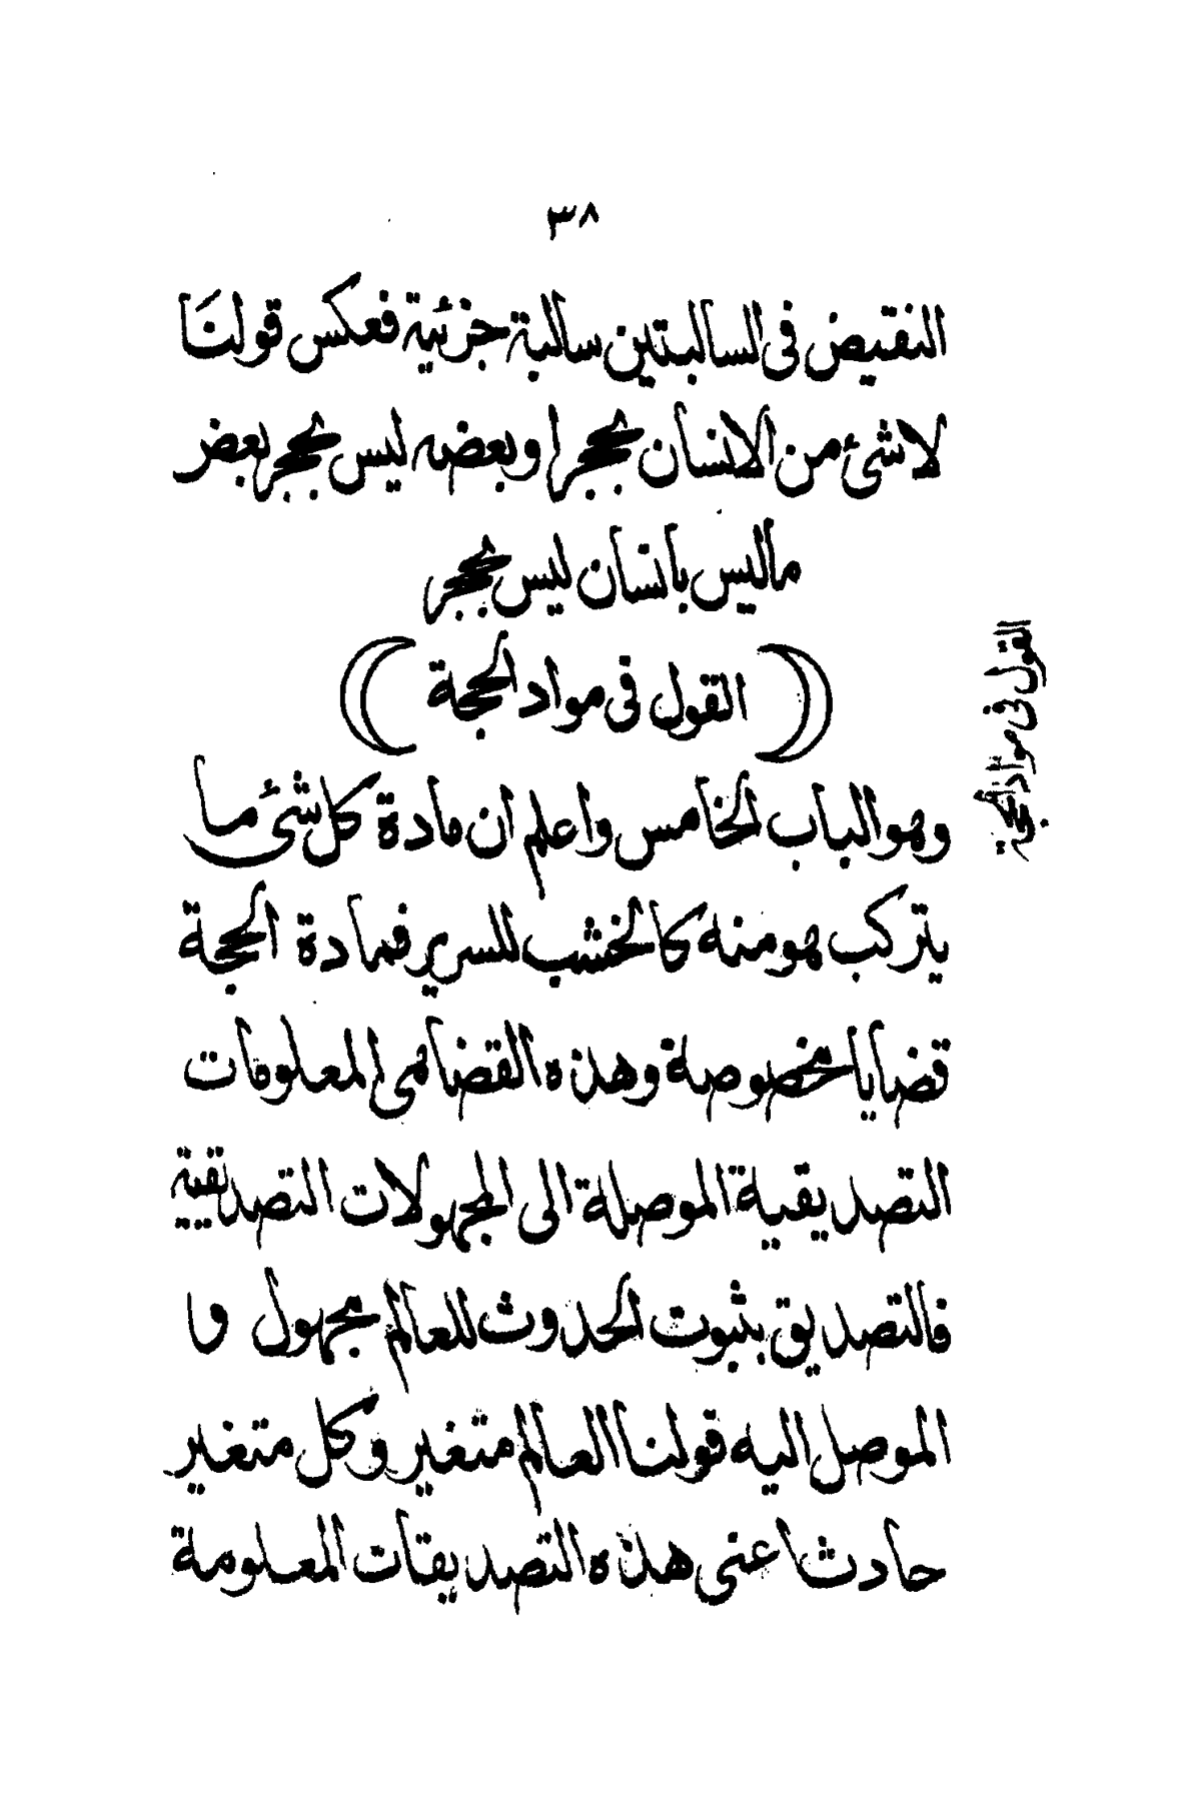 ٣٨
النقيض فى السالبتين سالبة جزئية فعكس قولنا
لاشئ من الانسان بحجرا وبعضه ليس بحجر بعض
ماليس بانسان ليس بحجر
(القول فى مواد الحجة)
القول فى مواد الحجة
وهو الباب الخامس واعلم ان مادة كل شئ ما
يتركب هو منه كالخشب للسرير فمادة الحجة
قضايا مخصوصة وهذه القضا هى المعلومات
التصديقية الموصلة الى المجهولات التصديقية
فالتصديق بثبوت الحدوث للعالم مجهول وا
الموصل اليه قولنا العالم متغير وكل متغير
حادث اعنى هذه التصديقات المعلومة